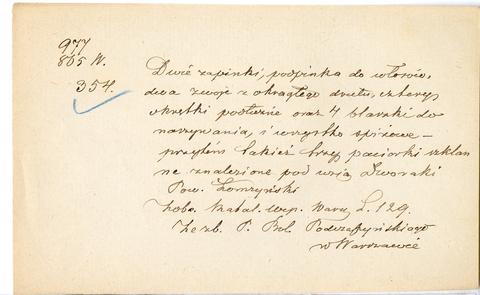 977
865 W.
354.
Dwie zapinki, podpinka do włosów,
dwa zwoje z okrągłego drutu, cztery
okrętki podłużne oraz 4 blaszki do
naszywania, i wszystko spiżowe –
przytem także trzy paciorki szklan
ne znalezione pod wsią Dworaki
Pow. Łomżyński
Zob. Katal. wyp. Warsz. L. 129.
Ze zb. P. Bol. Podczaszyńskiego
w Warszawie